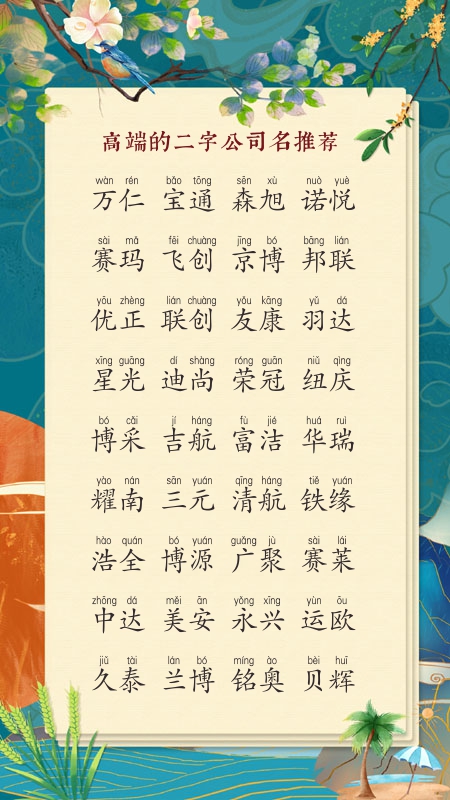 高端的二字公司名推荐
wàn rén bǎo tōng sēn xù nuò yuè
万仁 宝通 森旭 诺悦
sài mǎ fēi chuàng jīng bó bāng lián
赛玛 飞创 京博 邦联
yōu zhèng lián chuàng yǒu kāng yǔ dá
优正 联创 友康 羽达
xīng guāng dí shàng róng guān niǔ qìng
星光 迪尚 荣冠 纽庆
bó cǎi jí háng fù jié huá ruì
博采 吉航 富洁 华瑞
yào nán sān yuán qīng háng tiě yuán
耀南 三元 清航 铁缘
hào quán bó yuán guǎng jù sài lái
浩全 博源 广聚 赛莱
zhōng dá měi ān yǒng xīng yùn ōu
中达 美安 永兴 运欧
jiǔ tài lán bó míng ào bèi huī
久泰 兰博 铭奥 贝辉